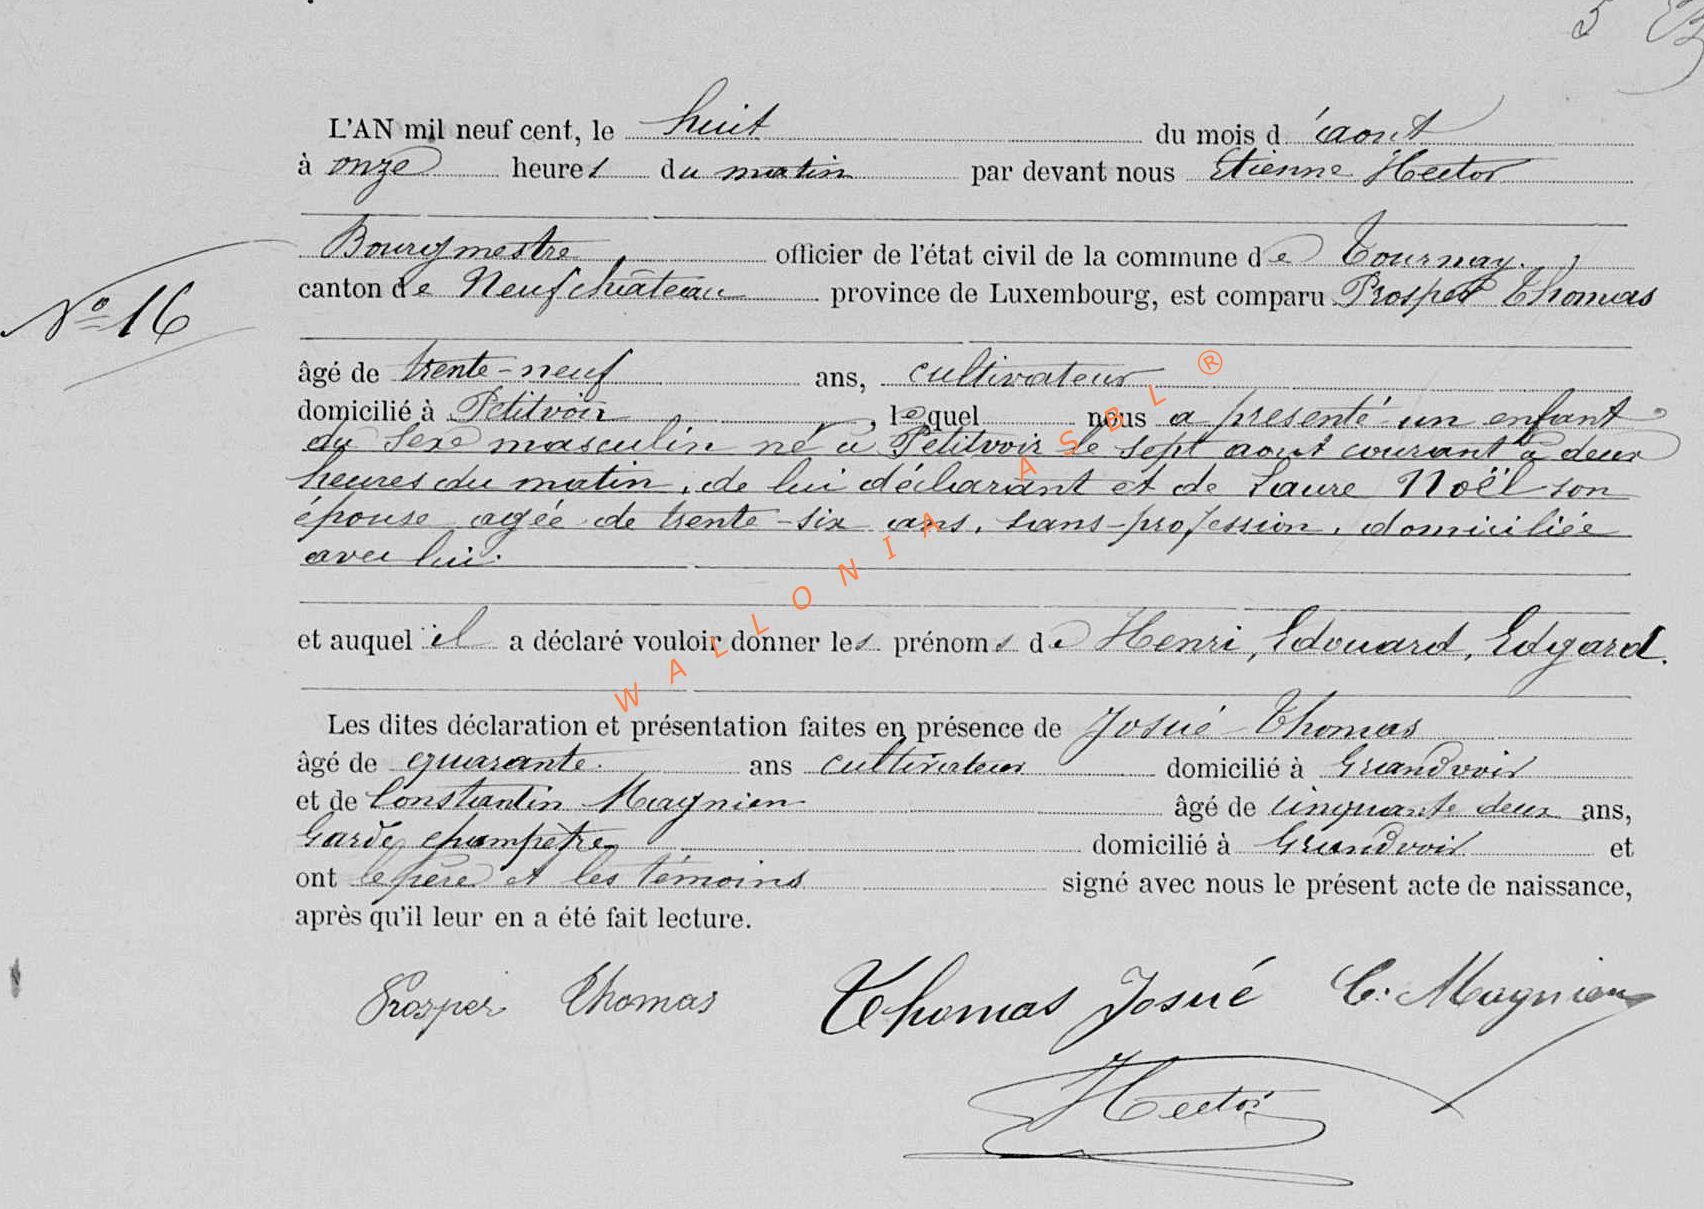 5
L'AN mil neuf cent, le huit du mois d'aout
à onze heures du matin par devant nous Etienne Hector
Bourgmestre officier de l'état civil de la commune de Tournay.
canton de Neufchâteau province de Luxembourg, est comparu Prosper Thomas
N° 16
âgé de trente-neuf ans, cultivateur
domicilié à Petitvoir, lequel nous a presenté un enfant
du sexe masculin né à Petitvoir le sept aout courant à deux
heures du matin, de lui déclarant et de Laure Noël son
épouse agée de trente-six ans, sans-profession, domiciliée
avec lui.
et auquel il a déclaré vouloir donner les prénoms de Henri, Edouard, Edgard.
Les dites déclaration et présentation faites en présence de Josué Thomas
âgé de quarante. ans cultivateur domicilié à Grandvoir
et de Constantin Magnien âgé de cinquante deux ans,
Garde champêtre domicilié à Grandvoir et
ont le père et les témoins signé avec nous le présent acte de naissance,
après qu'il leur en a été fait lecture.
Prosper Thomas Thomas Josué C. Magnien
Hector
WALLONIA ASBL ®